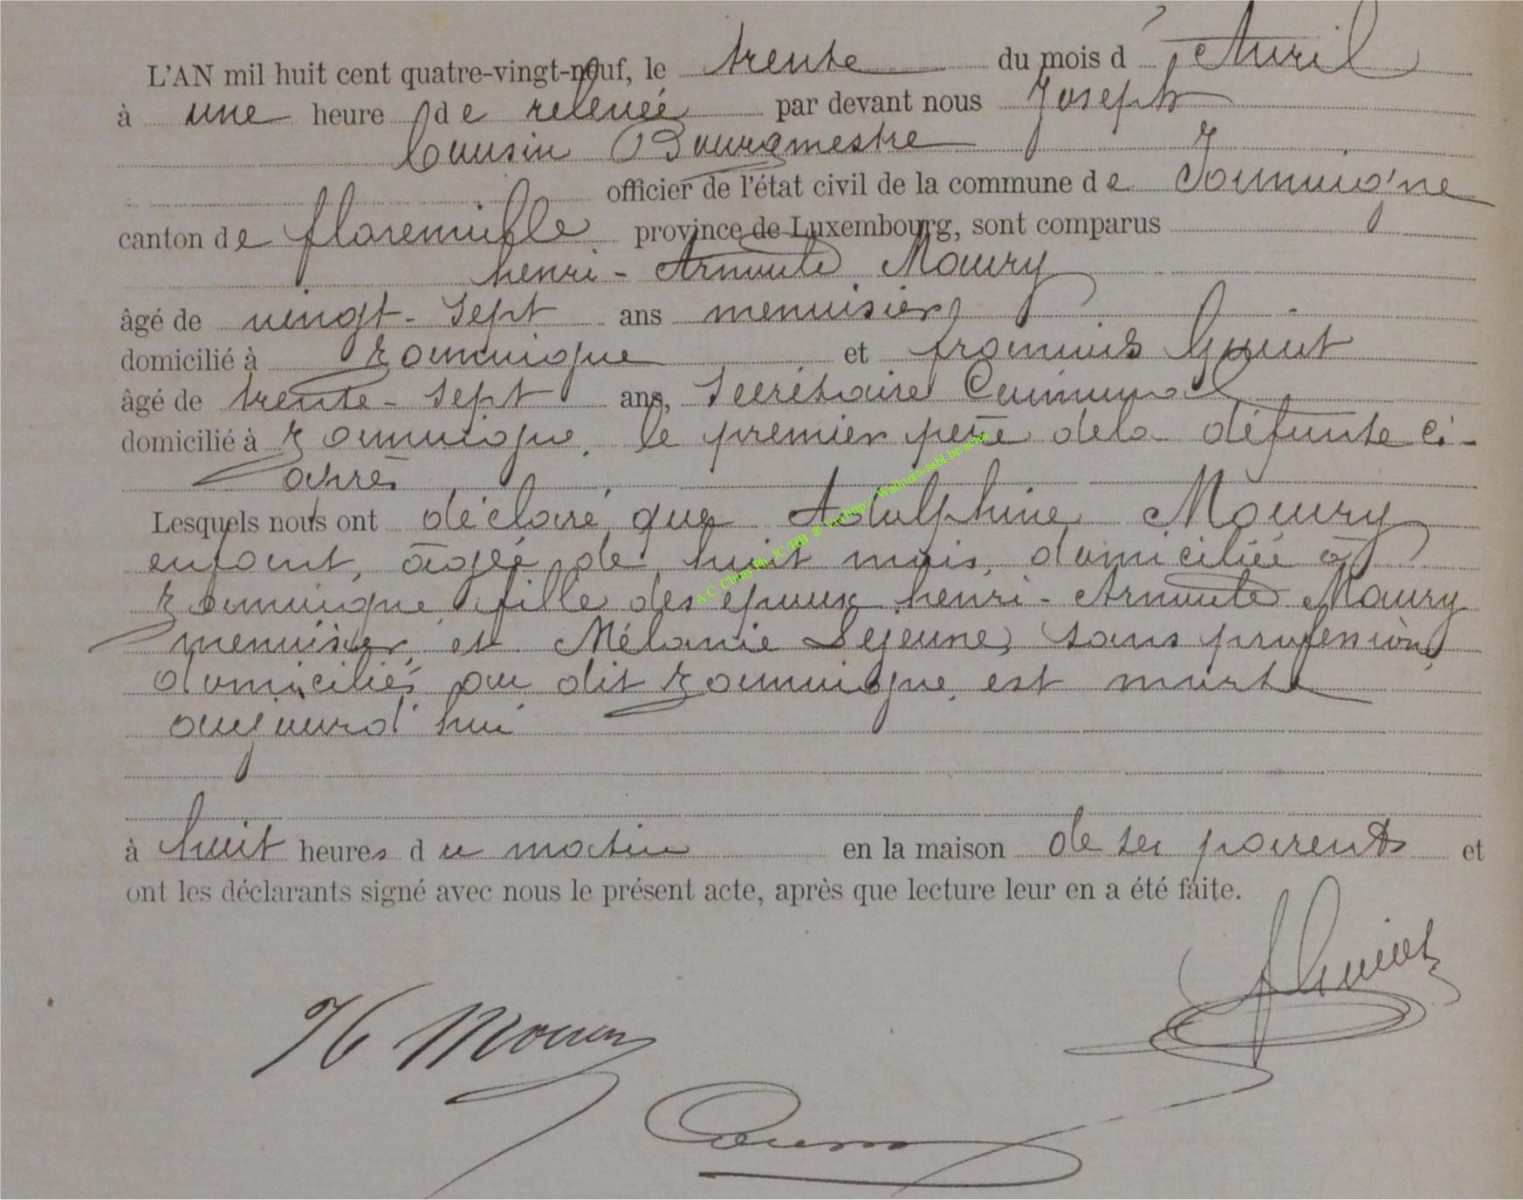 L'AN mil huit cent quatre-vingt-neuf, le trente du mois d'Avril
à une heure de relevée par devant nous Joseph
Cousin Bourgmestre
officier de l'état civil de la commune de
canton de florenville province de Luxembourg, sont comparus
henri - Moury
âgé de vingt-sept ans menuisier
domicilié à et françois
âgé de trente-sept ans, Secrétaire Communal
domicilié à le premier père de la défunte ci-
après
Lesquels nous ont déclaré que Adolphine Moury
enfant, âgée de huit mois, domiciliée à
fille des époux henri - Moury
menuisier et Mélanie Lejeune, sans profession
domiciliés au dit est morte
aujourd'hui
à huit heures du matin en la maison de ses parents et
ont les déclarants signé avec nous le présent acte, après que lecture leur en a été faite.
H Moury
Cousin